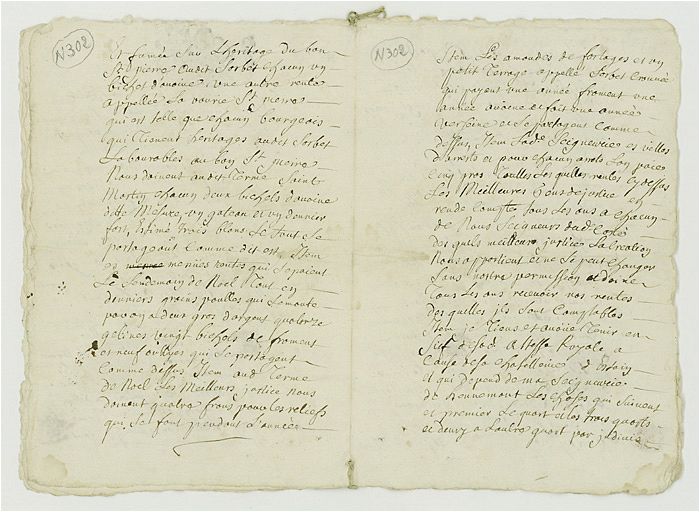 N302
et fumée sur l'héritage du ban
St pierre audit Sorbet chacun un
bichet d'avoine, une autre rente
appellée la vourie St pierre
qui est telle que chacun bourgeois
qui tienent héritages audit Sorbet
labourables au ban St pierre
Nous doivent audit terme Saint
Martin chacun deux bichets d'avoine
dite Mesure, un gateau et un denier
fort, Estimé trois blans le tout se
partageant Comme dit est, Item
es menües rentes qui se paient
Le lendemain de Noel tout en
deniers grains poulles qui se monte
pour an a deux gros d'argent quatorze
gelines vingt bichets de froment
et neuf qui se partagent
Comme dessus Item audit Terme
de Noel Les Meilleurs justice nous
doivent quatre frans pour les reliefs
qui se font pendant l'année
N302
Item Les amendes de fortages et un
petit Terrage appellé Sorbet
qui payent une année froment une
année avoine et fait une année
verseine et se partagent Comme
dessus, Item Seigneurie es villes
d'arests et pour chacun arest L'on paie
Cinq gros les quelles rentes cy dessus
Les Meilleures gens de justice en
rende Compte tous les ans a chacun
de Nous Seigneurs
des quels meilleurs justice La creation
Nous appartient et ne se peut changer
Sans nostre permission et doivent
Tous les ans recevoir nos rentes
des quelles ils sont Comptables
Item je Tiens et avoüe Tenir en
fief de Sad. Altesse Royale a
Cause de sa chatellenie d'Estain
et qui depend de ma Seigneurie
de honnemont Les choses qui suivent
et premier Le quart et les trois quarts
et demy a l'autre quart par jndivis